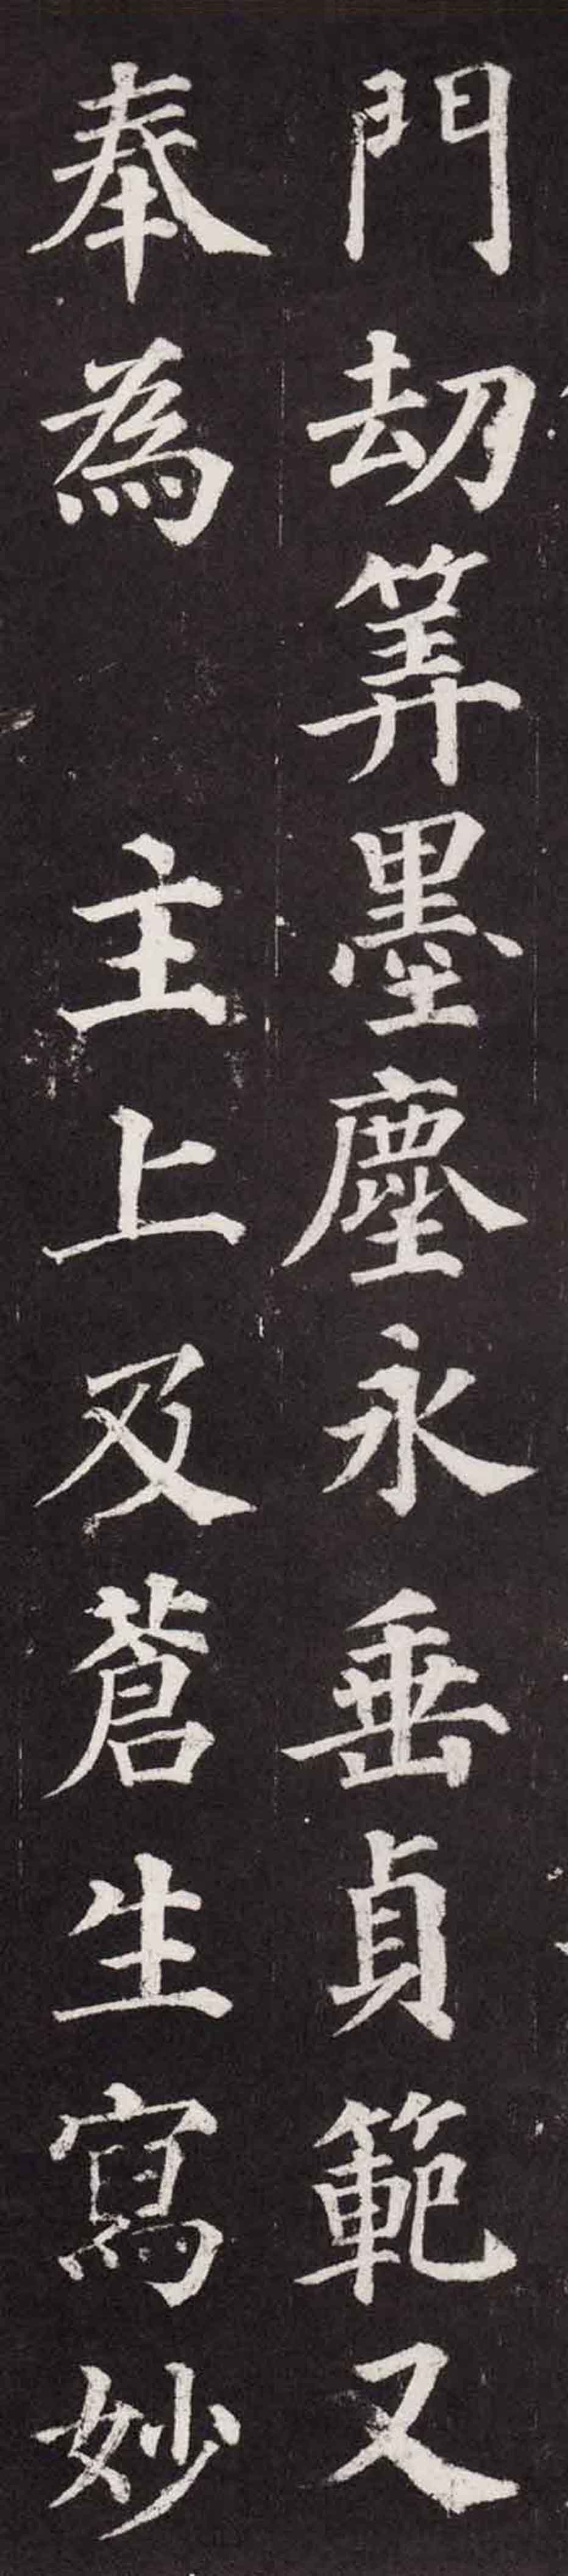 門劫筭墨塵永垂貞範又
奉為 主上及蒼生寫妙